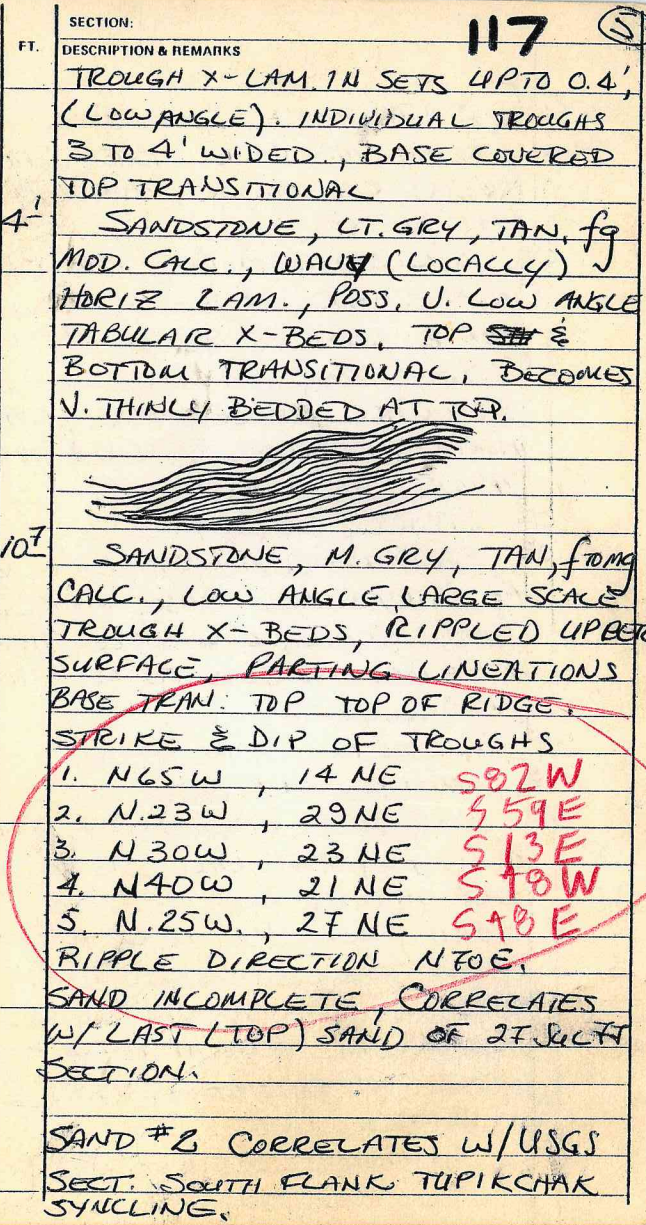 SECTION: 117 5
FT. DESCRIPTION & REMARKS
TROUGH X-LAM. IN SETS UP TO 0.4',
(LOW ANGLE). INDIVIDUAL TROUGHS
3 TO 4' WIDED., BASE COVERED
TOP TRANSITIONAL
4 1 SANDSTONE, LT. GRY, TAN, fg
MOD. CALC., WAVY (LOCALLY)
HORIZ LAM., POSS. V. LOW ANGLE
TABULAR X-BEDS. TOP &
BOTTOM TRANSITIONAL, BECOMES
V. THINLY BEDDED AT TOP.
10 7 SANDSTONE, M. GRY, TAN, f TO mg
CALC., LOW ANGLE LARGE SCALE
TROUGH X-BEDS, RIPPLED UPPER
SURFACE, PARTING LINEATIONS
BASE TRAN: TOP TOP OF RIDGE.
STRIKE & DIP OF TROUGHS
1. N65W, 14 NE S82W
2. N.23W, 29NE S59E
3. N30W, 23 NE S13E
4. N40W, 21 NE S48W
5. N.25W., 27 NE S48E
RIPPLE DIRECTION N70E.
SAND INCOMPLETE, CORRELATES
W/ LAST (TOP) SAND OF 27 JUL 77
SECTION.
SAND #2 CORRELATES W/USGS
SECT. SOUTH FLANK TUPIKCHAK
SYNCLINE.